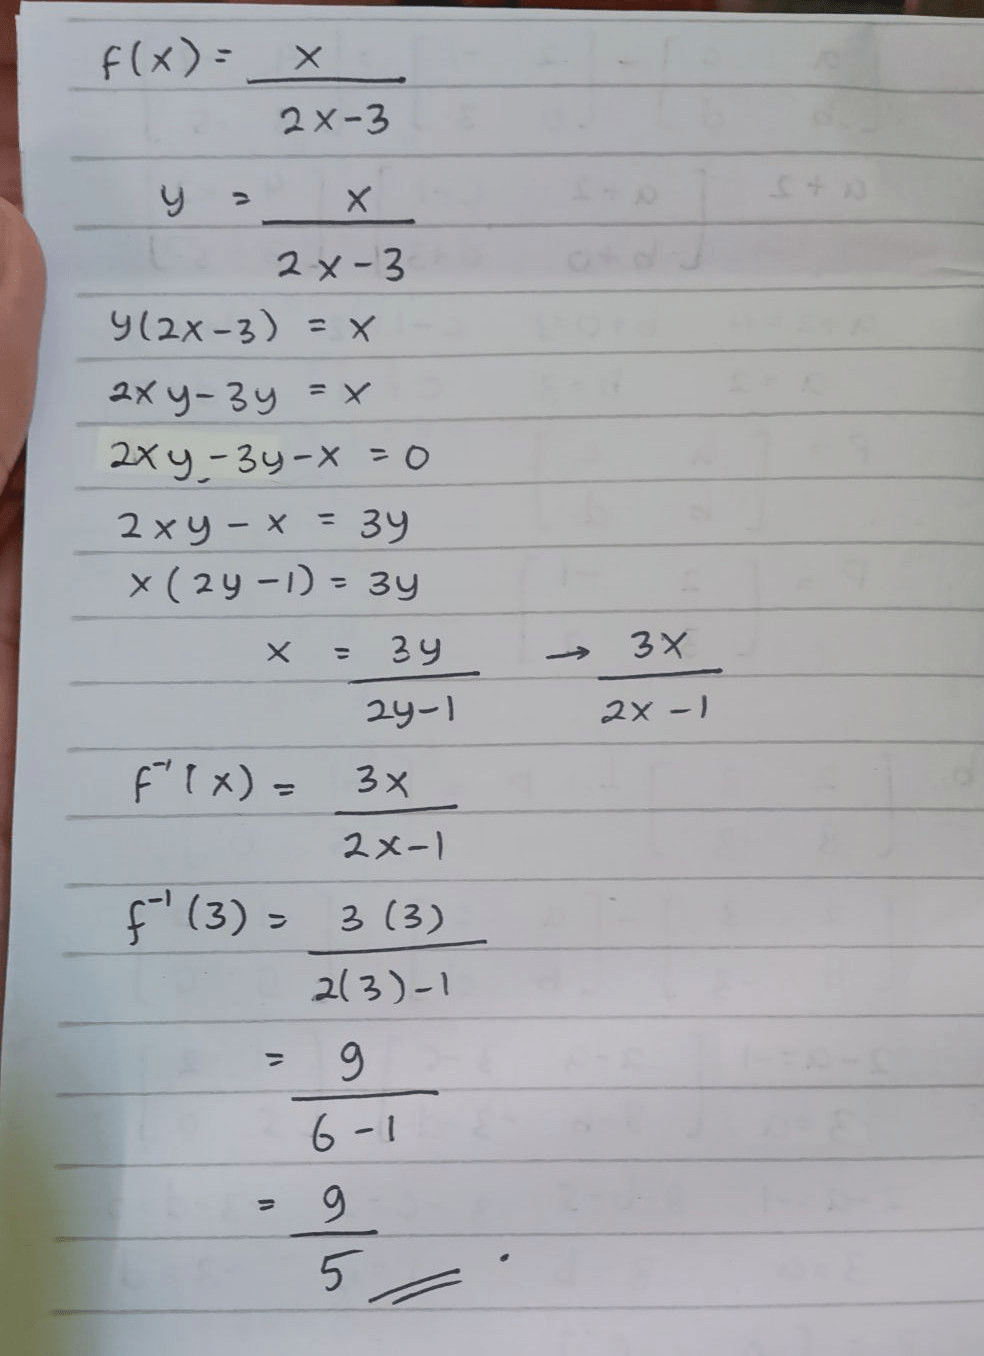 f(x) = x
2x-3
y = x
2x-3
y(2x-3) = x
2xy-3y = x
2xy-3y-x = 0
2xy - x = 3y
x(2y-1) = 3y
x = 3y → 3x
2y-1 2x-1
f⁻¹(x) = 3x
2x-1
f⁻¹(3) = 3(3)
2(3)-1
= 9
6-1
= 9
5